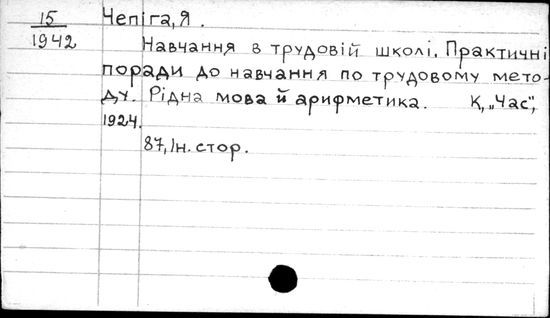 15
1942
Чепіга, Я.
Навчання в трудовій школі. Практичні
поради до навчання по трудовому мето-
ду. Рідна мова й арифметика. К, „Час",
1924.
87, Ін. стор.